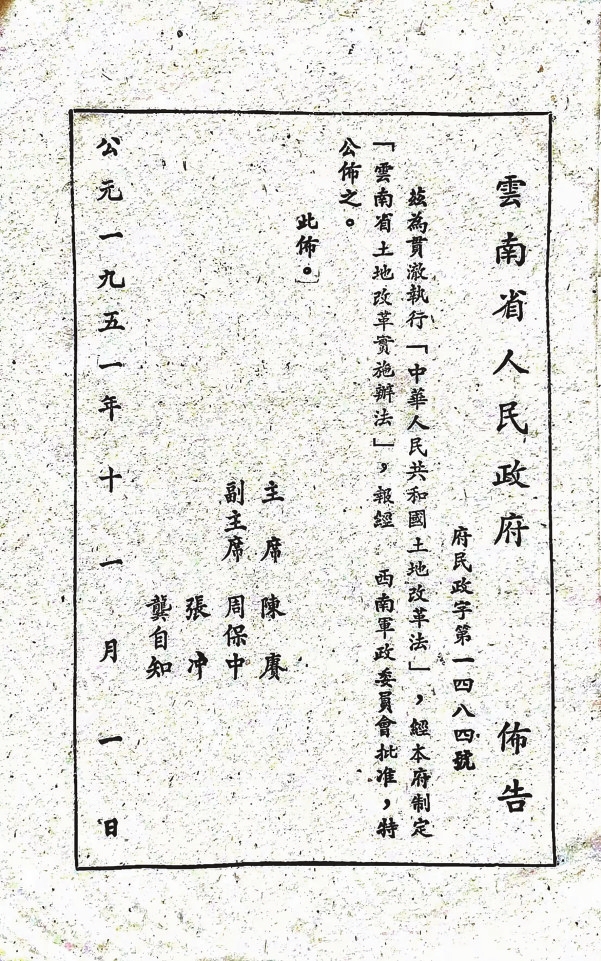 雲南省人民政府　佈告
府民政字第一四八四號
茲為貫澈執行「中華人民共和國土地改革法」，經本府制定
「雲南省土地改革實施辦法」，報經　西南軍政委員會批准，特
公佈之。
此佈。
主席　陳賡
副主席　周保中
張冲
龔自知
公元一九五一年十一月一日